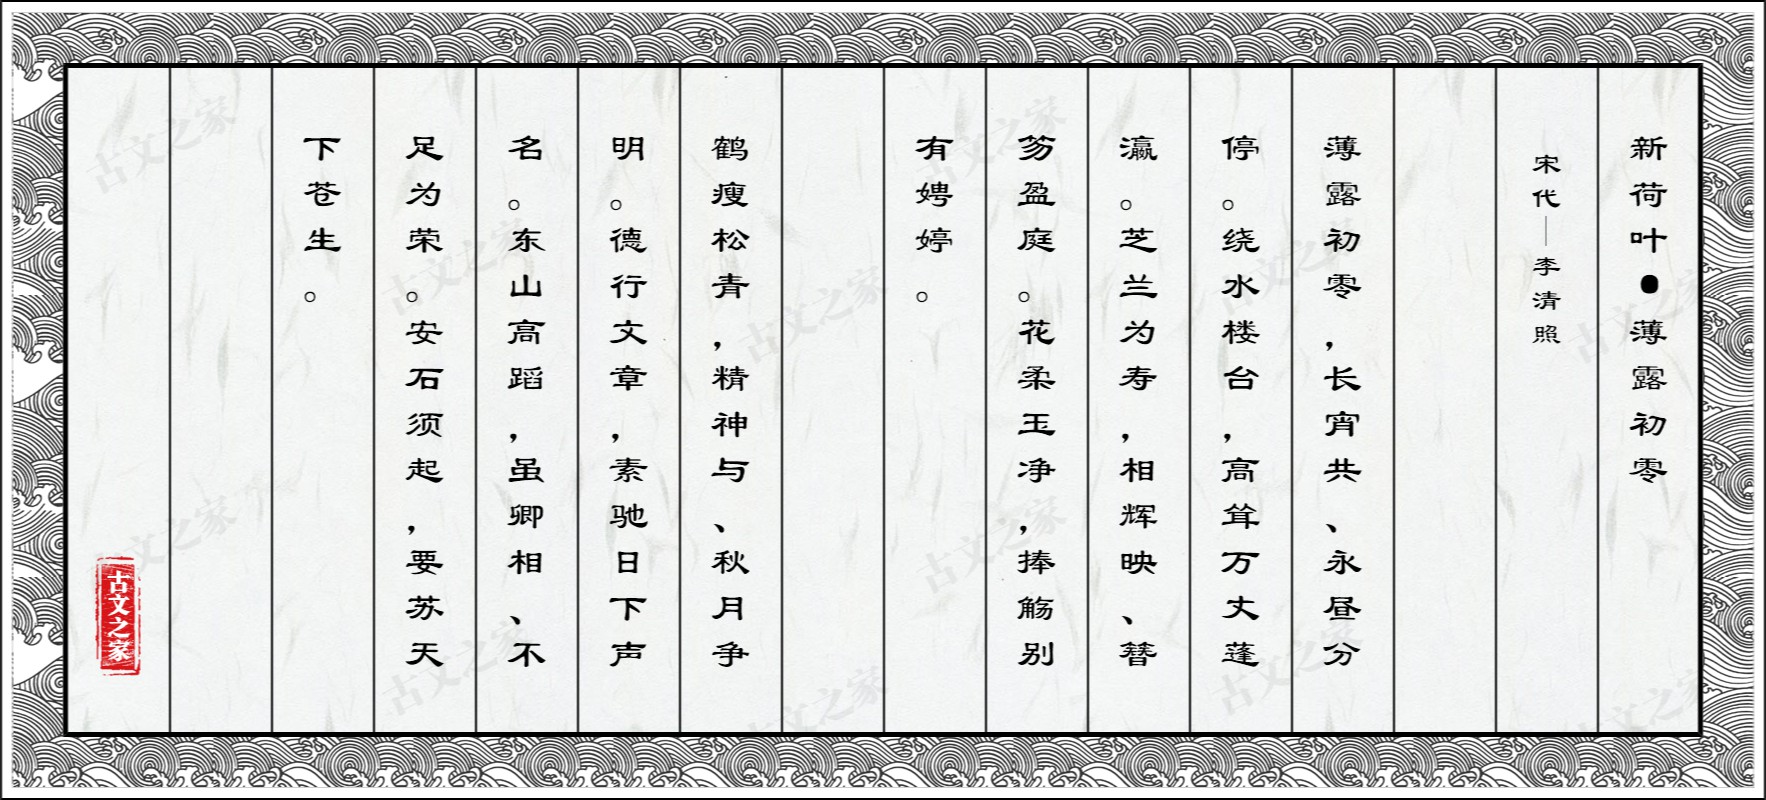 新荷叶●薄露初零
宋代—李清照
薄露初零，长宵共、永昼分
停。绕水楼台，高耸万丈蓬
瀛。芝兰为寿，相辉映、簪
笏盈庭。花柔玉净，捧觞别
有娉婷。
鹤瘦松青，精神与、秋月争
明。德行文章，素驰日下声
名。东山高蹈，虽卿相、不
足为荣。安石须起，要苏天
下苍生。
古文之家